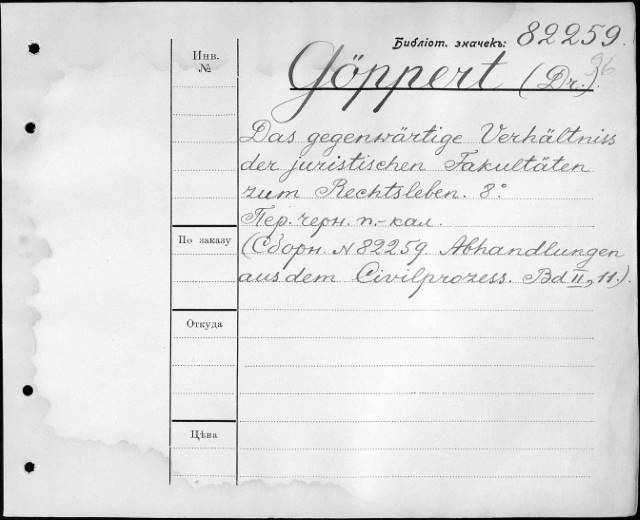 Библіот. значекъ: 82259.
96
Инв.
№
Göppert (Dr.).
Das gegenwärtige Verhältniss
der juristischen Fakultäten
zum Rechtsleben. 8°.
Пер. черн. п.-кал.
По заказу
(Сборн. N 82259. Abhandlungen
aus dem Civilprozess. Bd II, 11.).
Откуда
Цѣна